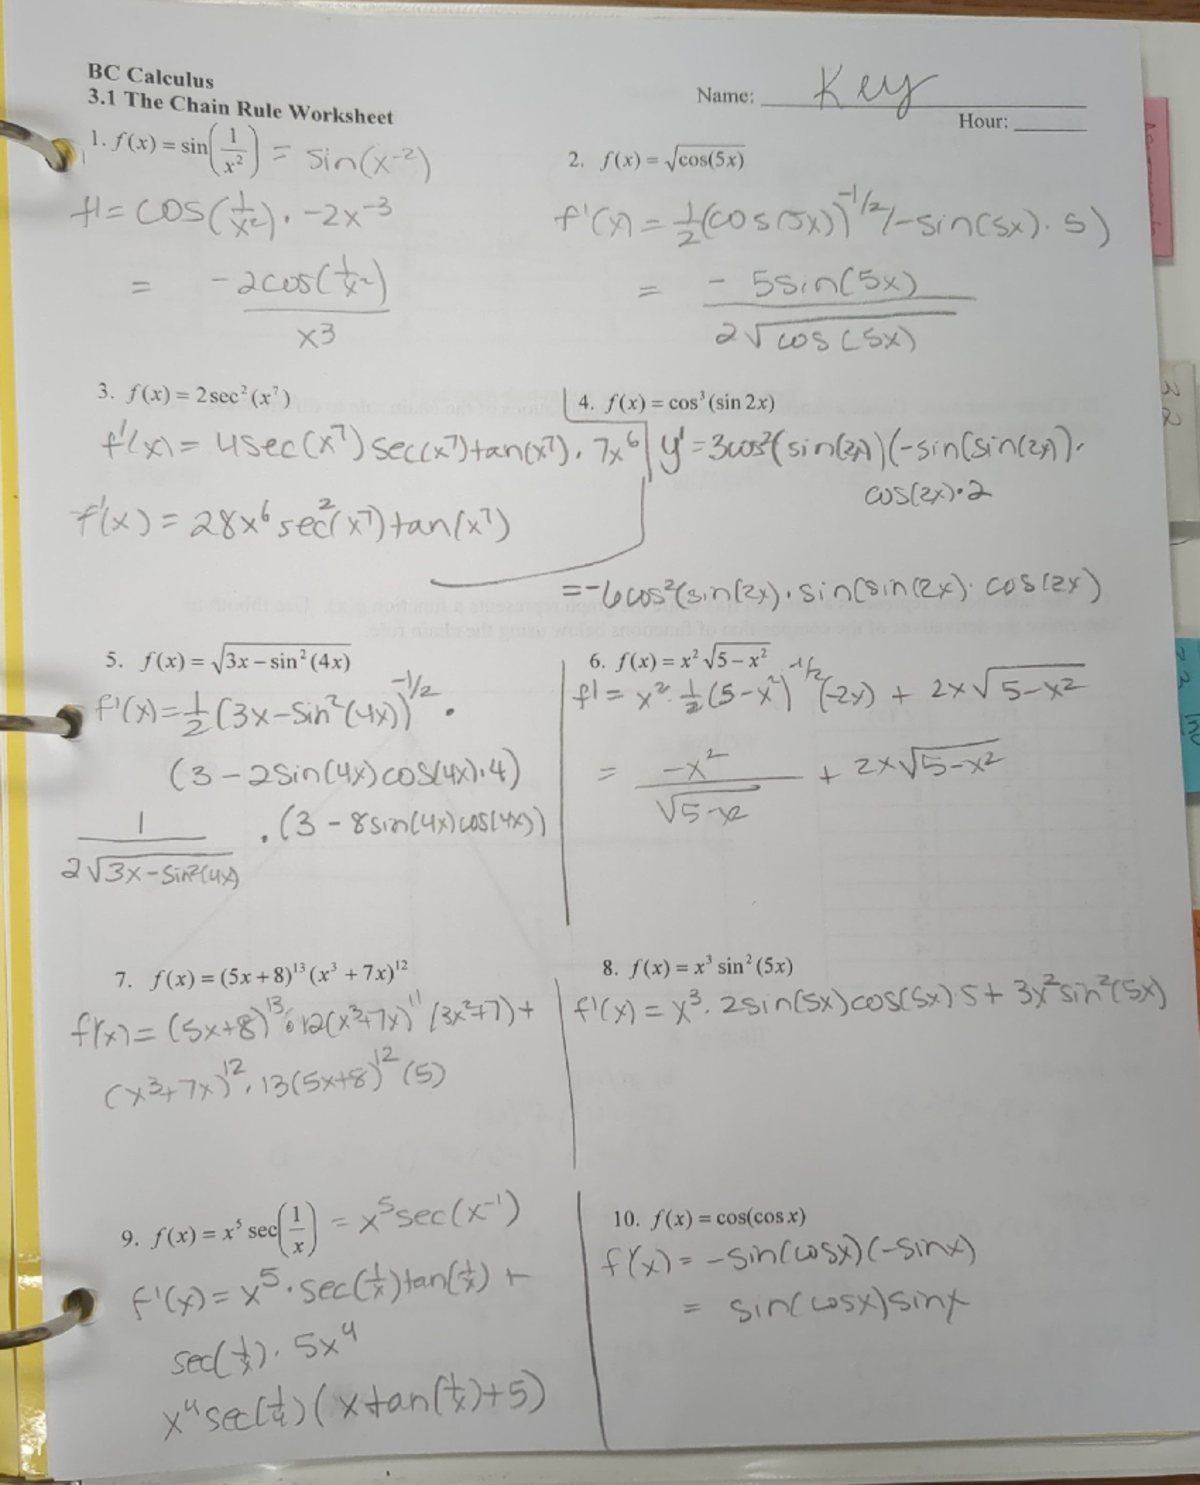 BC Calculus
3.1 The Chain Rule Worksheet
Name: Key
Hour:
1. f(x) = sin(1/x²) = sin(x⁻²)
f' = cos(1/x²) · -2x⁻³
= -2cos(1/x²) / x³
2. f(x) = √cos(5x)
f'(x) = 1/2 (cos(5x))^(-1/2) (-sin(5x) · 5)
= -5sin(5x) / 2√cos(5x)
3. f(x) = 2sec²(x⁷)
f'(x) = 4sec(x⁷)sec(x⁷)tan(x⁷) · 7x⁶
f'(x) = 28x⁶ sec²(x⁷)tan(x⁷)
4. f(x) = cos³(sin 2x)
y' = 3cos²(sin(2x)(-sin(sin(2x)·
cos(2x)·2
= -6cos²(sin(2x) · sin(sin(2x) · cos(2x)
5. f(x) = √3x – sin²(4x)
f'(x) = 1/2 (3x – sin²(4x))^(-1/2) ·
(3 – 2sin(4x)cos(4x)·4)
1 / 2√3x – sin²(4x) · (3 – 8sin(4x)cos(4x))
6. f(x) = x²√5 – x²
f' = x² · 1/2 (5-x²)^(-1/2) (-2x) + 2x√5-x²
= -x² / √5-x² + 2x√5-x²
7. f(x) = (5x + 8)¹³(x³ + 7x)¹²
f'(x) = (5x+8)¹³ · 12(x³+7x)¹¹ (3x²+7) +
(x³+7x)¹² · 13(5x+8)¹² (5)
8. f(x) = x³ sin²(5x)
f'(x) = x³ · 2sin(5x)cos(5x)·5 + 3x²sin²(5x)
9. f(x) = x⁵ sec(1/x) = x⁵sec(x⁻¹)
f'(x) = x⁵ · sec(1/x)tan(1/x) +
sec(1/x) · 5x⁴
x⁴sec(1/x)(x tan(1/x)+5)
10. f(x) = cos(cos x)
f'(x) = -sin(cosx)(-sinx)
= sin(cosx)sinx